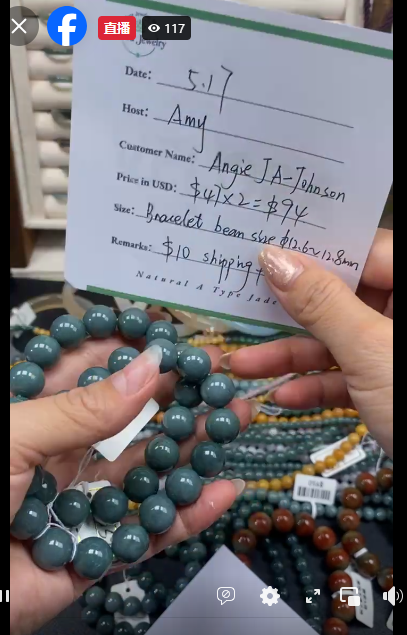 直播
117
Jewelry
Date: 5.17
Host: Amy
Customer Name: Angie JA-Johnson
Price in USD: $47x2=$94
Size: Bracelet bean size φ12.6~12.8mm
Remarks: $10 shipping +
Natural A Type Jade